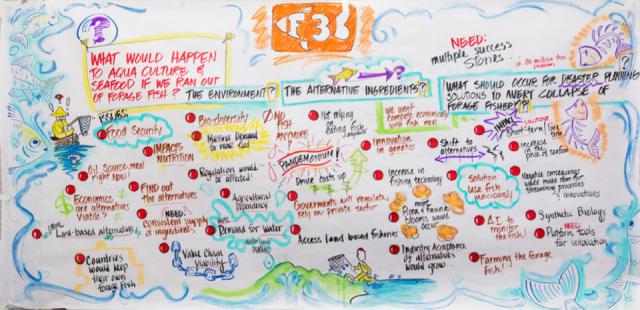 F3
NEED:
multiple success
stories...
WHAT WOULD HAPPEN
TO AQUA CULTURE &
SEAFOOD IF WE RAN OUT
OF FORAGE FISH?
THE ENVIRONMENT?
THE ALTERNATIVE INGREDIENTS?
WHAT SHOULD OCCUR FOR DISASTER PLANNING
SOLUTIONS TO AVERT COLLAPSE OF
FORAGE FISHERY?
ISSUES
Food Security
IMPACTS
NUTRITION
Oil Source-meal
right Now!
FIND OUT
the alternatives
Economics
are alternatives
Viable?
NEED:
Consistent supply
of ingredients
Land-based alternatives
Countries
would keep
their own
forage fish
Value Chain
Viability
Bio-diversity
Massive Demand
for
Regulation would
be affected!
Agricultural
Dependency
Demand for water
NO
FISH
ANYMORE
PANDEMONIUM!
Drive costs up
Not relying
fish
Governments will
rely on private sector
Access land-based fisheries
we won't
compete economically
with fish meal
innovation
in genetics
Increase of
fishing technology
more
Flora & Fauna
blooms would
occur
Industry Acceptance
of alternatives
would grow
IMPACT
Short-term
long
Shift to
alternatives
increase
price of
Solution
use fish
judiciously
Negative consequences
while
processes
innovations
A.I to
monitor
the fish!
Synthetic Biology
NEED:
Platform tools
for innovation
Farming the forage
fish!